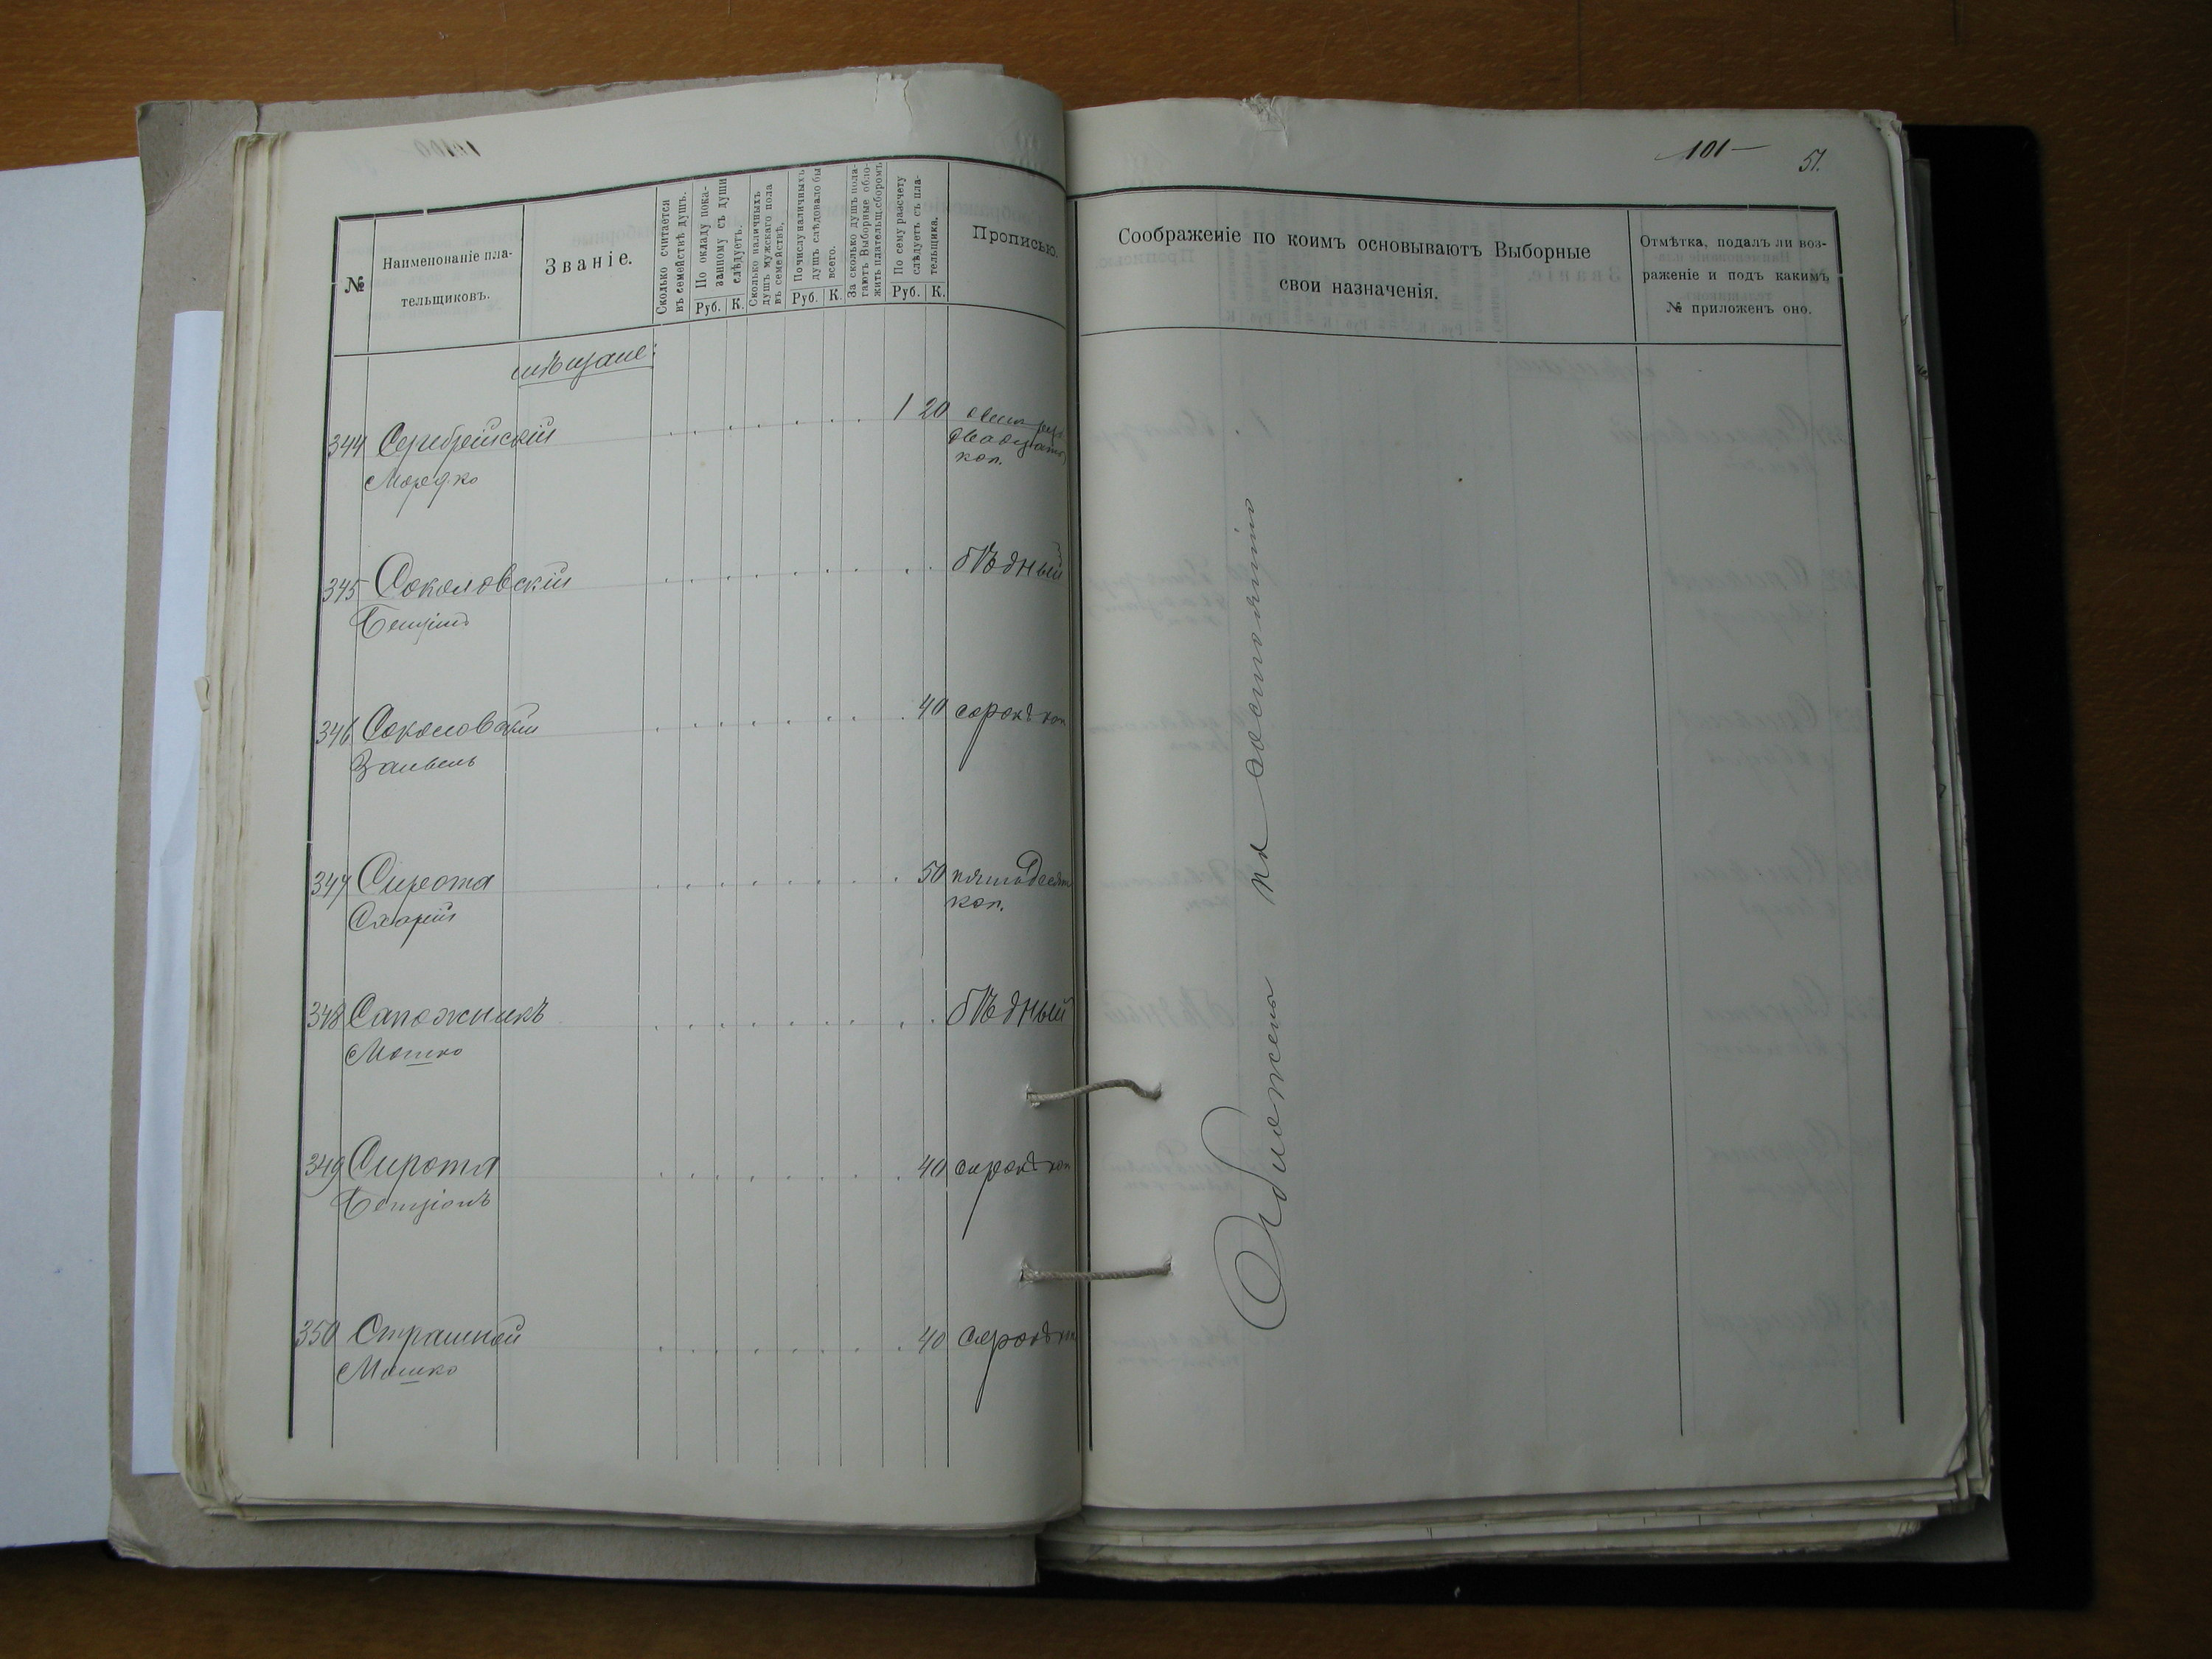 101
51.
№
Наименованіе пла-
тельщиковъ.
Званіе.
Сколько считается
въ семействѣ душъ.
По окладу пока-
занному съ души
слѣдуетъ.
Руб. К.
Сколько наличныхъ
душъ мужскаго пола
въ семействѣ.
По числу наличныхъ
душъ слѣдовало бы
всего.
Руб. К.
За сколько душъ пола-
гаютъ Выборные обло-
жить плательщ. сборомъ
По сему разсчету
слѣдуетъ съ пла-
тельщика.
Руб. К.
Прописью.
Соображеніе по коимъ основываютъ Выборные
свои назначенія.
Отмѣтка, подалъ ли воз-
раженіе и подъ какимъ
№ приложенъ оно.
мѣщане:
344 Серебрійскій 1 20 одинъ руб.
Мордко двадцать
коп.
345 Соколовскій бѣдный
346 Соколовскій 40 сорокъ коп
Зайвель
347 Сирота 50 пятьдесят
коп.
348 Сапожникъ бѣдный
Мошко
349 Сирота 40 сорокъ коп
Бенціонъ
350 Страшной 40 сорокъ коп
Мошко
Обложены по состоянію